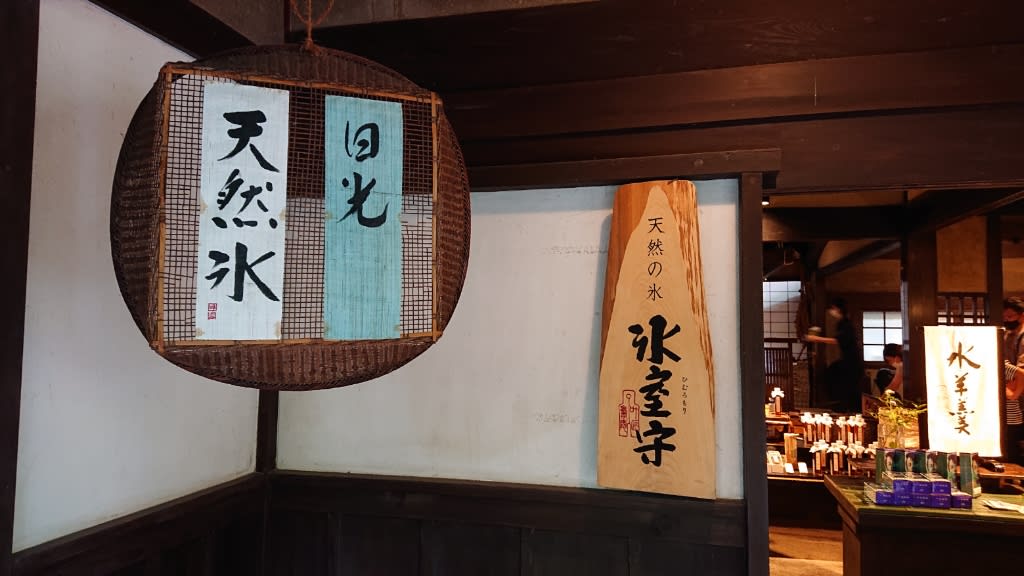 日光
天然氷
天然の氷
氷室守
ひむろもり
水羊羹